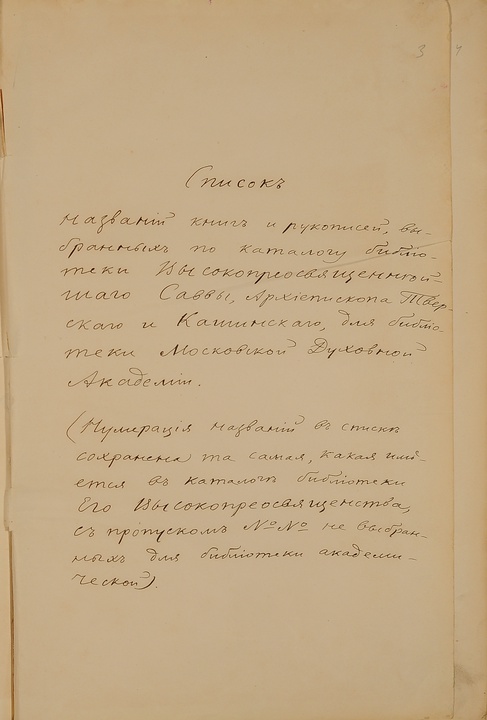 3 4
Списокъ
названій книгъ и рукописей, вы-
бранныхъ по каталогу библіо-
теки Высокопреосвященнѣй-
шаго Саввы, Архіепископа Твер-
скаго и Кашинскаго, для библіо-
теки Московской Духовной
Академіи.
(Нумерація названій въ спискѣ
сохранена та самая, какая имѣ-
ется въ каталогѣ библіотеки
Его Высокопреосвященства,
съ пропускомъ №№ не выбран-
ныхъ для библіотеки академи-
ческой).